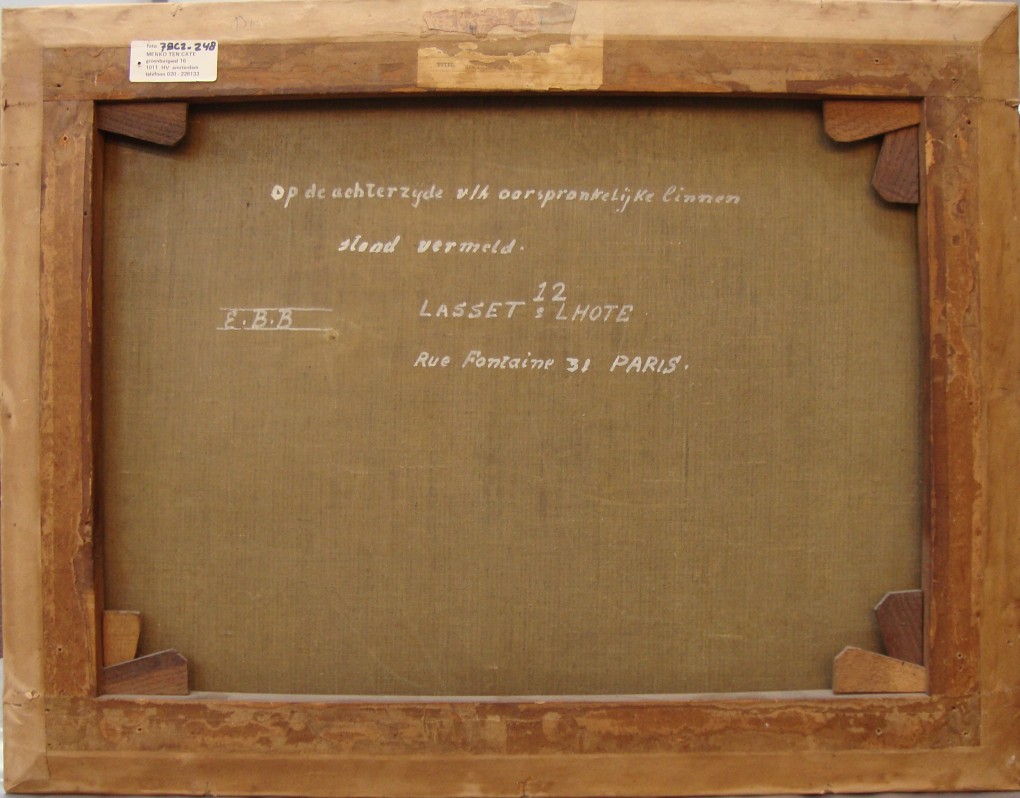 foto 79C2-248
MENKO TEN CATE
1011 HV amsterdam
telefoon 020 - 226133
TITEL
Op de achterzyde v/h oorspronkelijke linnen
stond vermeld.
12
E.B.B LASSET : LHOTE
Rue Fontaine 31 PARIS.